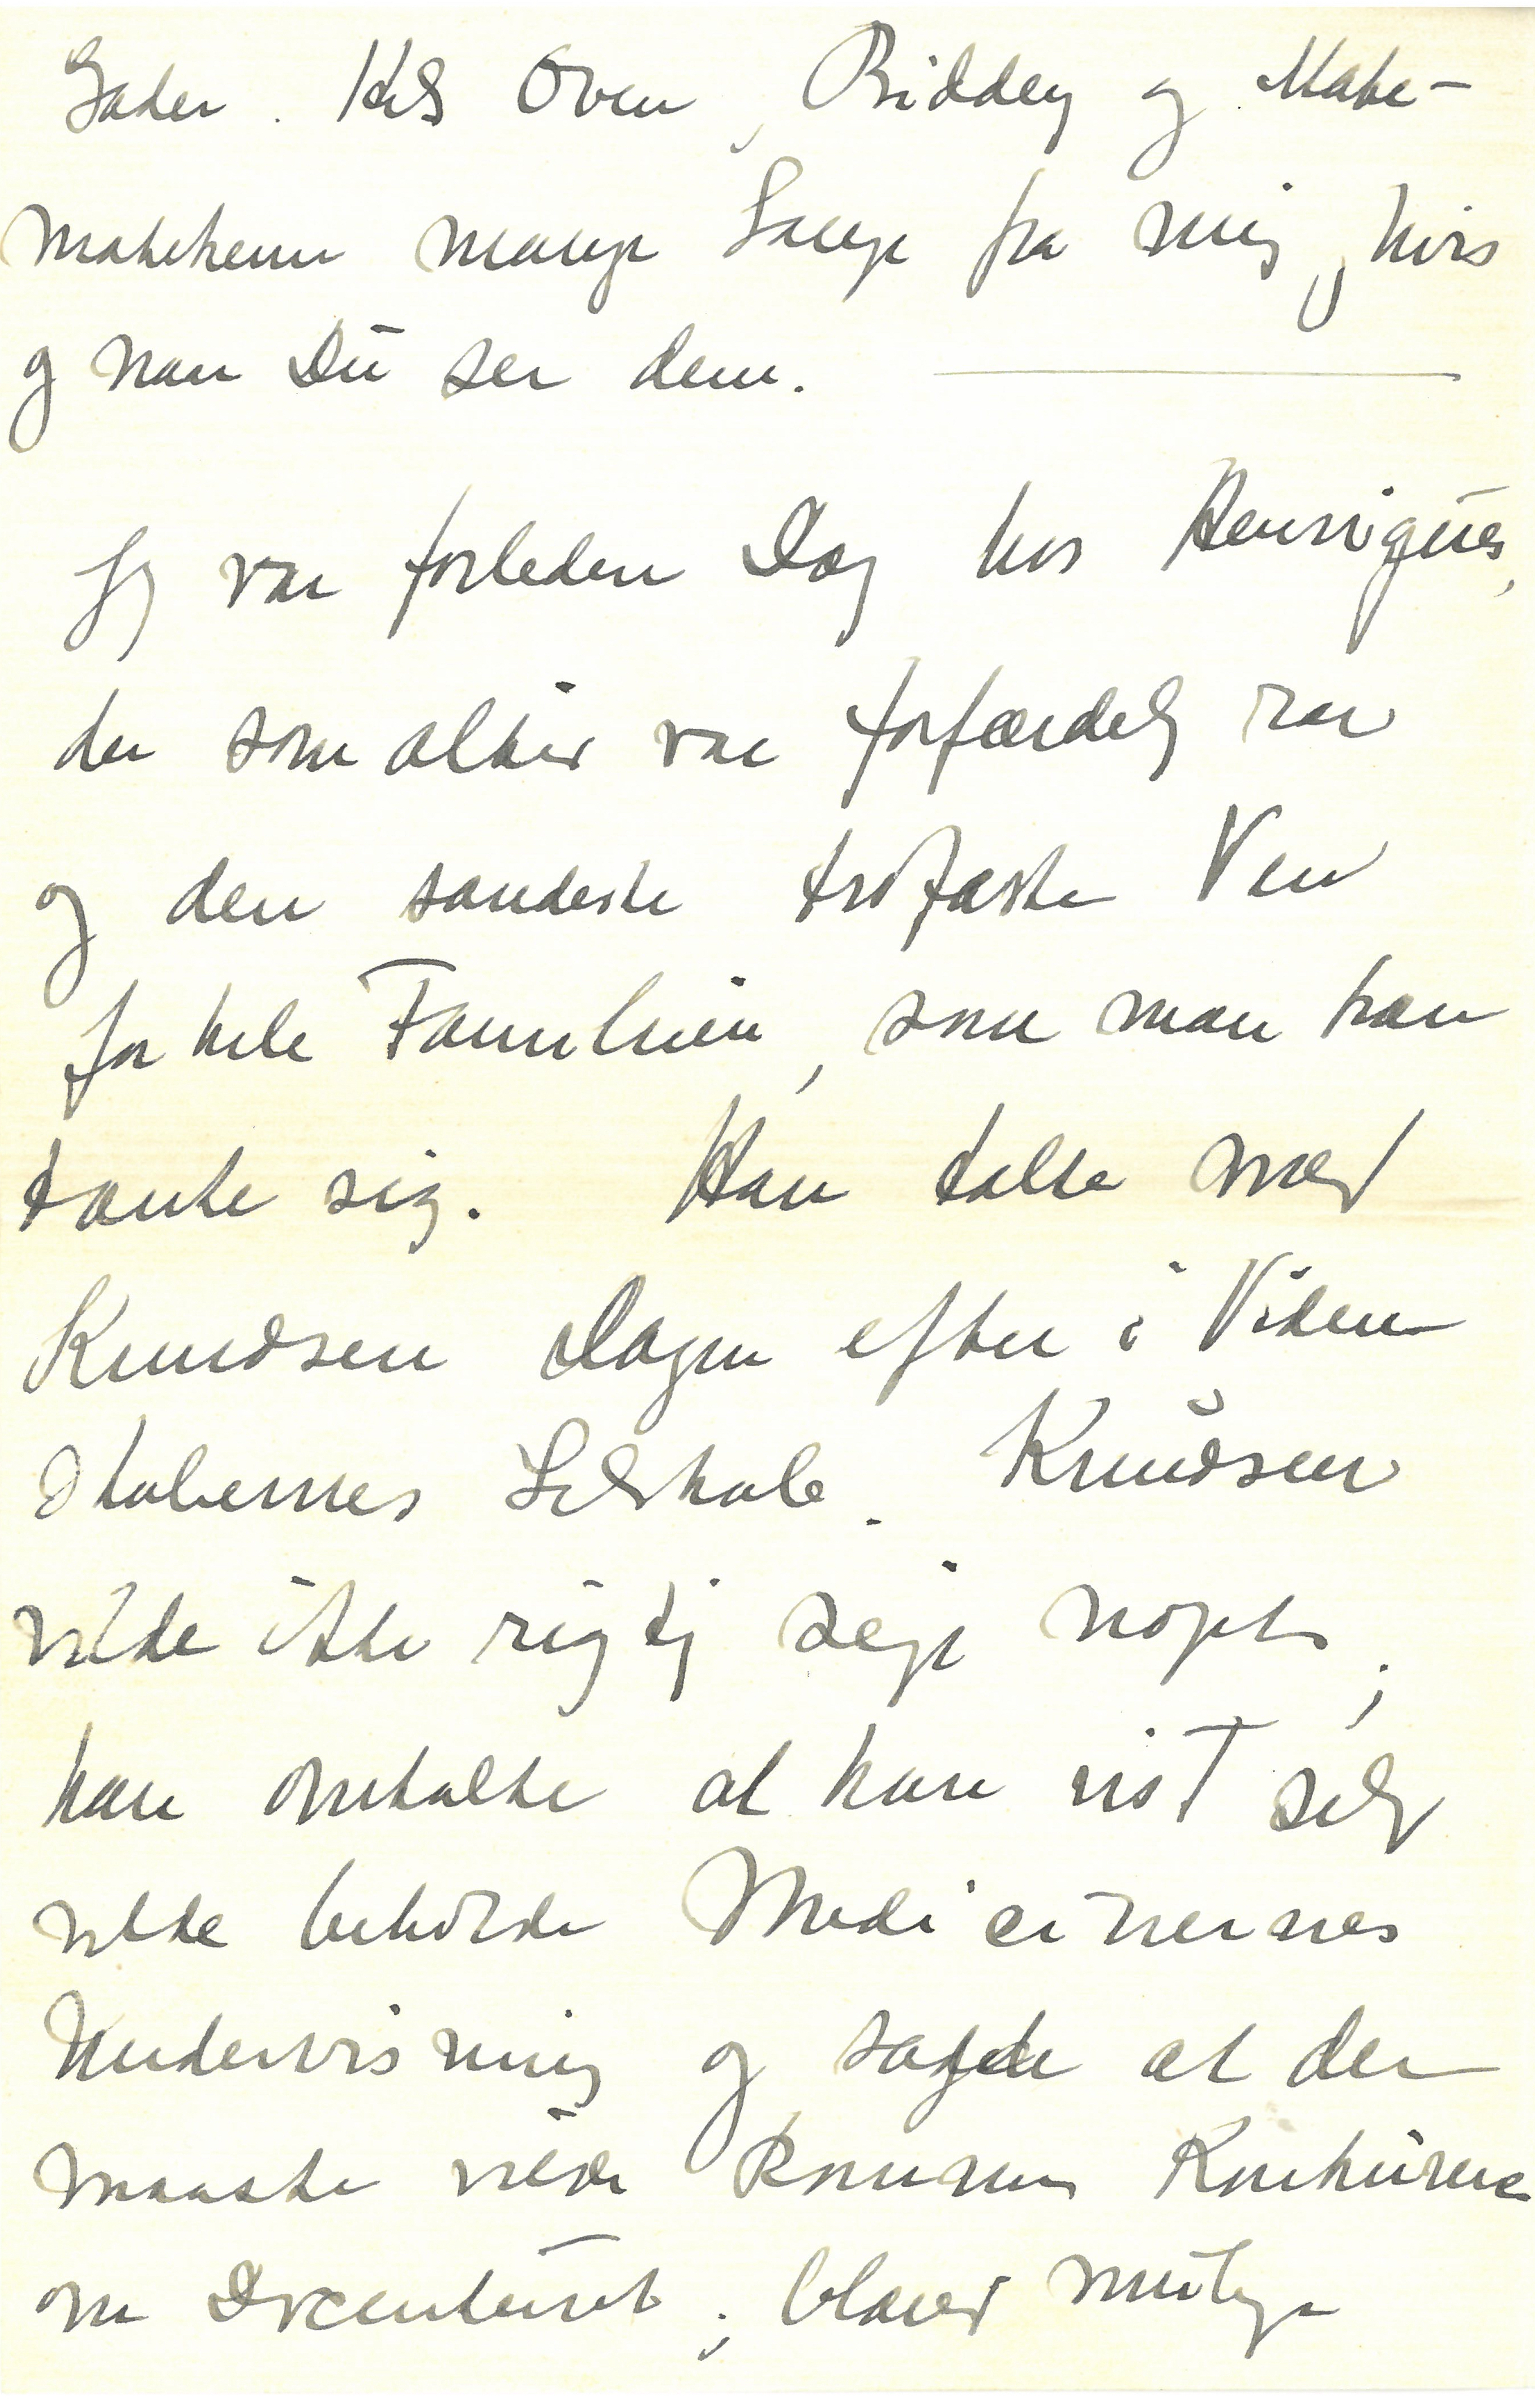 Gader. Hils Owen, Biddy og Mate-
matikeren mange Gange fra mig, hvis
og naar Du ser dem.
Jeg var forleden Dag hos Henriques,
der som altid var forfærdelig rar
og den sandeste trofaste Ven
for hele Familien, som man kan
tænke sig. Han talte med
Knudsen Dagen efter i Viden
skabernes Selskab. Knudsen
vilde ikke rigtig sige noget;
han omtalte at han nok selv
vilde beholde Medicinernes
Undervisning og sagde at der
maaske vilde komme Konkurrence
om Docenturet; blandt mulige